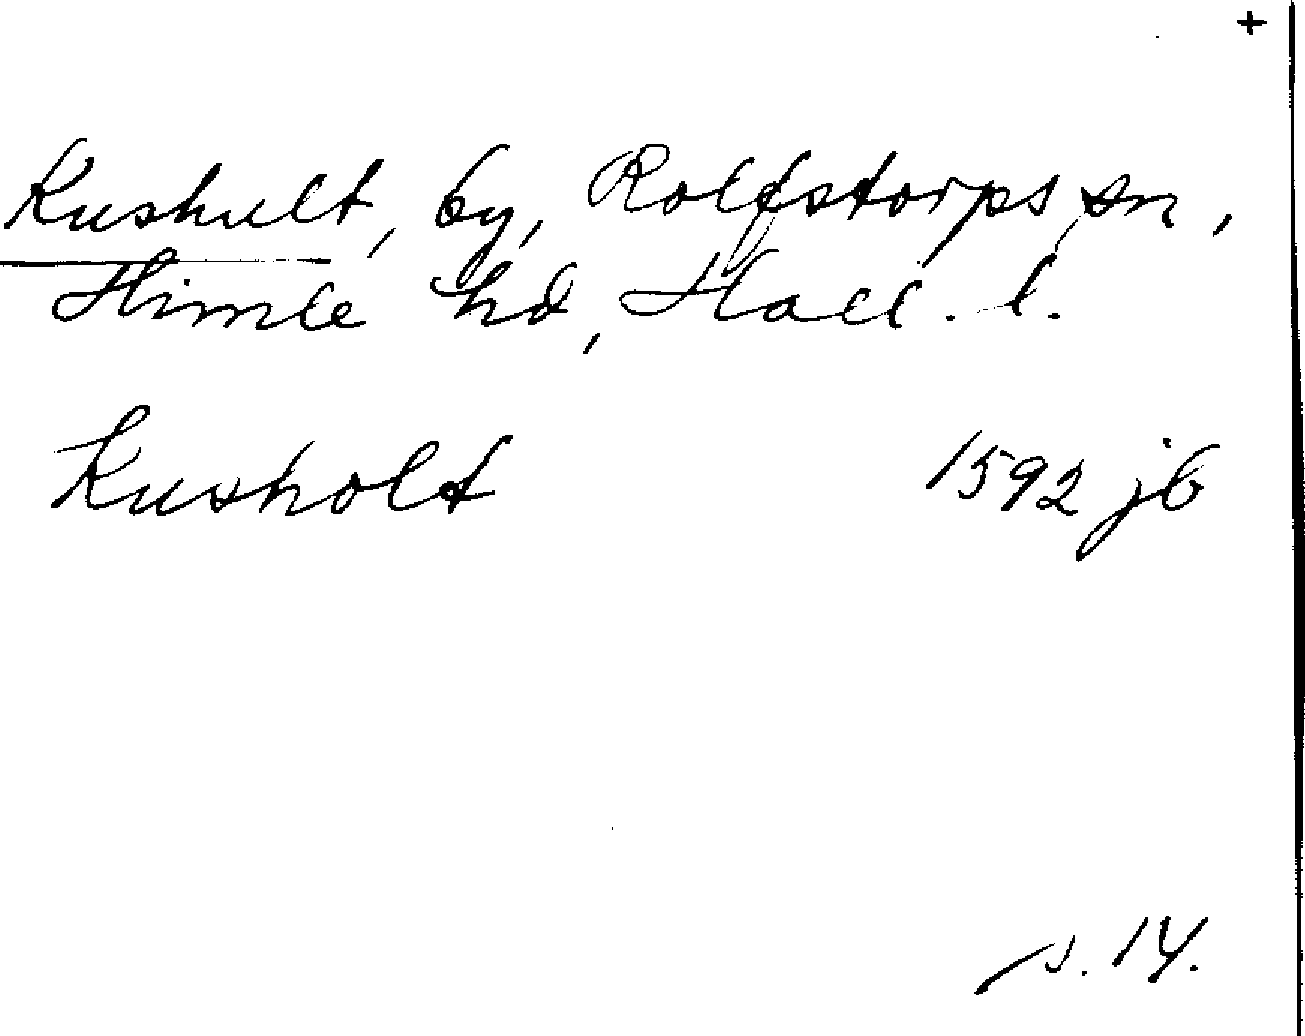 +
Kushult, by, Rolfstorps sn,
Himle hd, Hall. l.
Kusholt 1592 jb
s. 14.